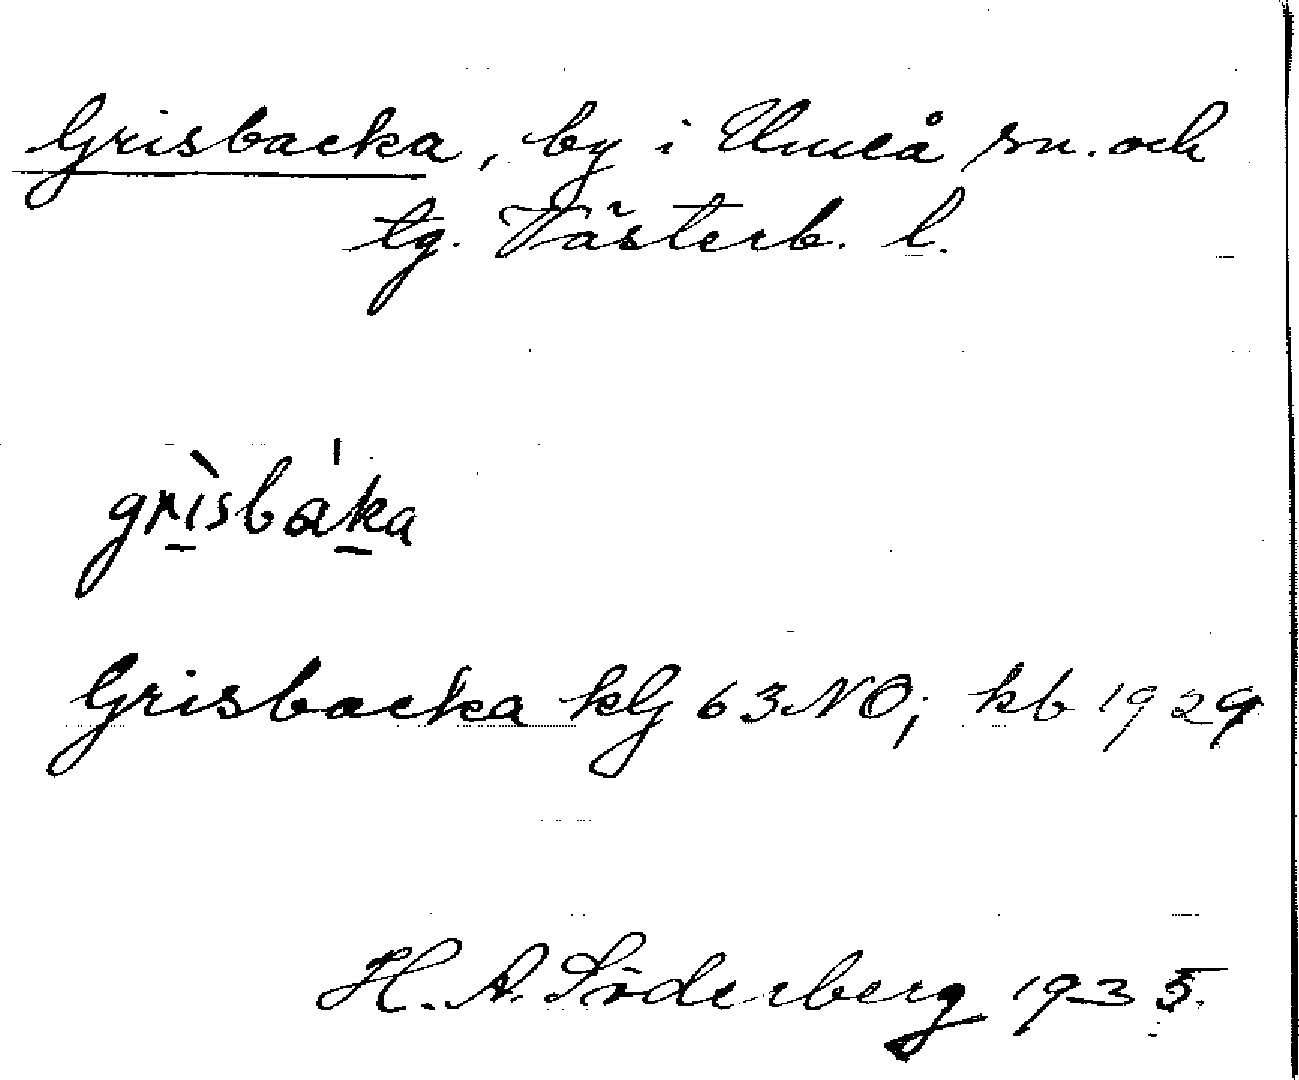 Grisbacka, by i Umeå sn. och
tg. Västerb. l.
grìsbáka
Grisbacka klG 63NO; kb 1929
H. A. Söderberg 1935.